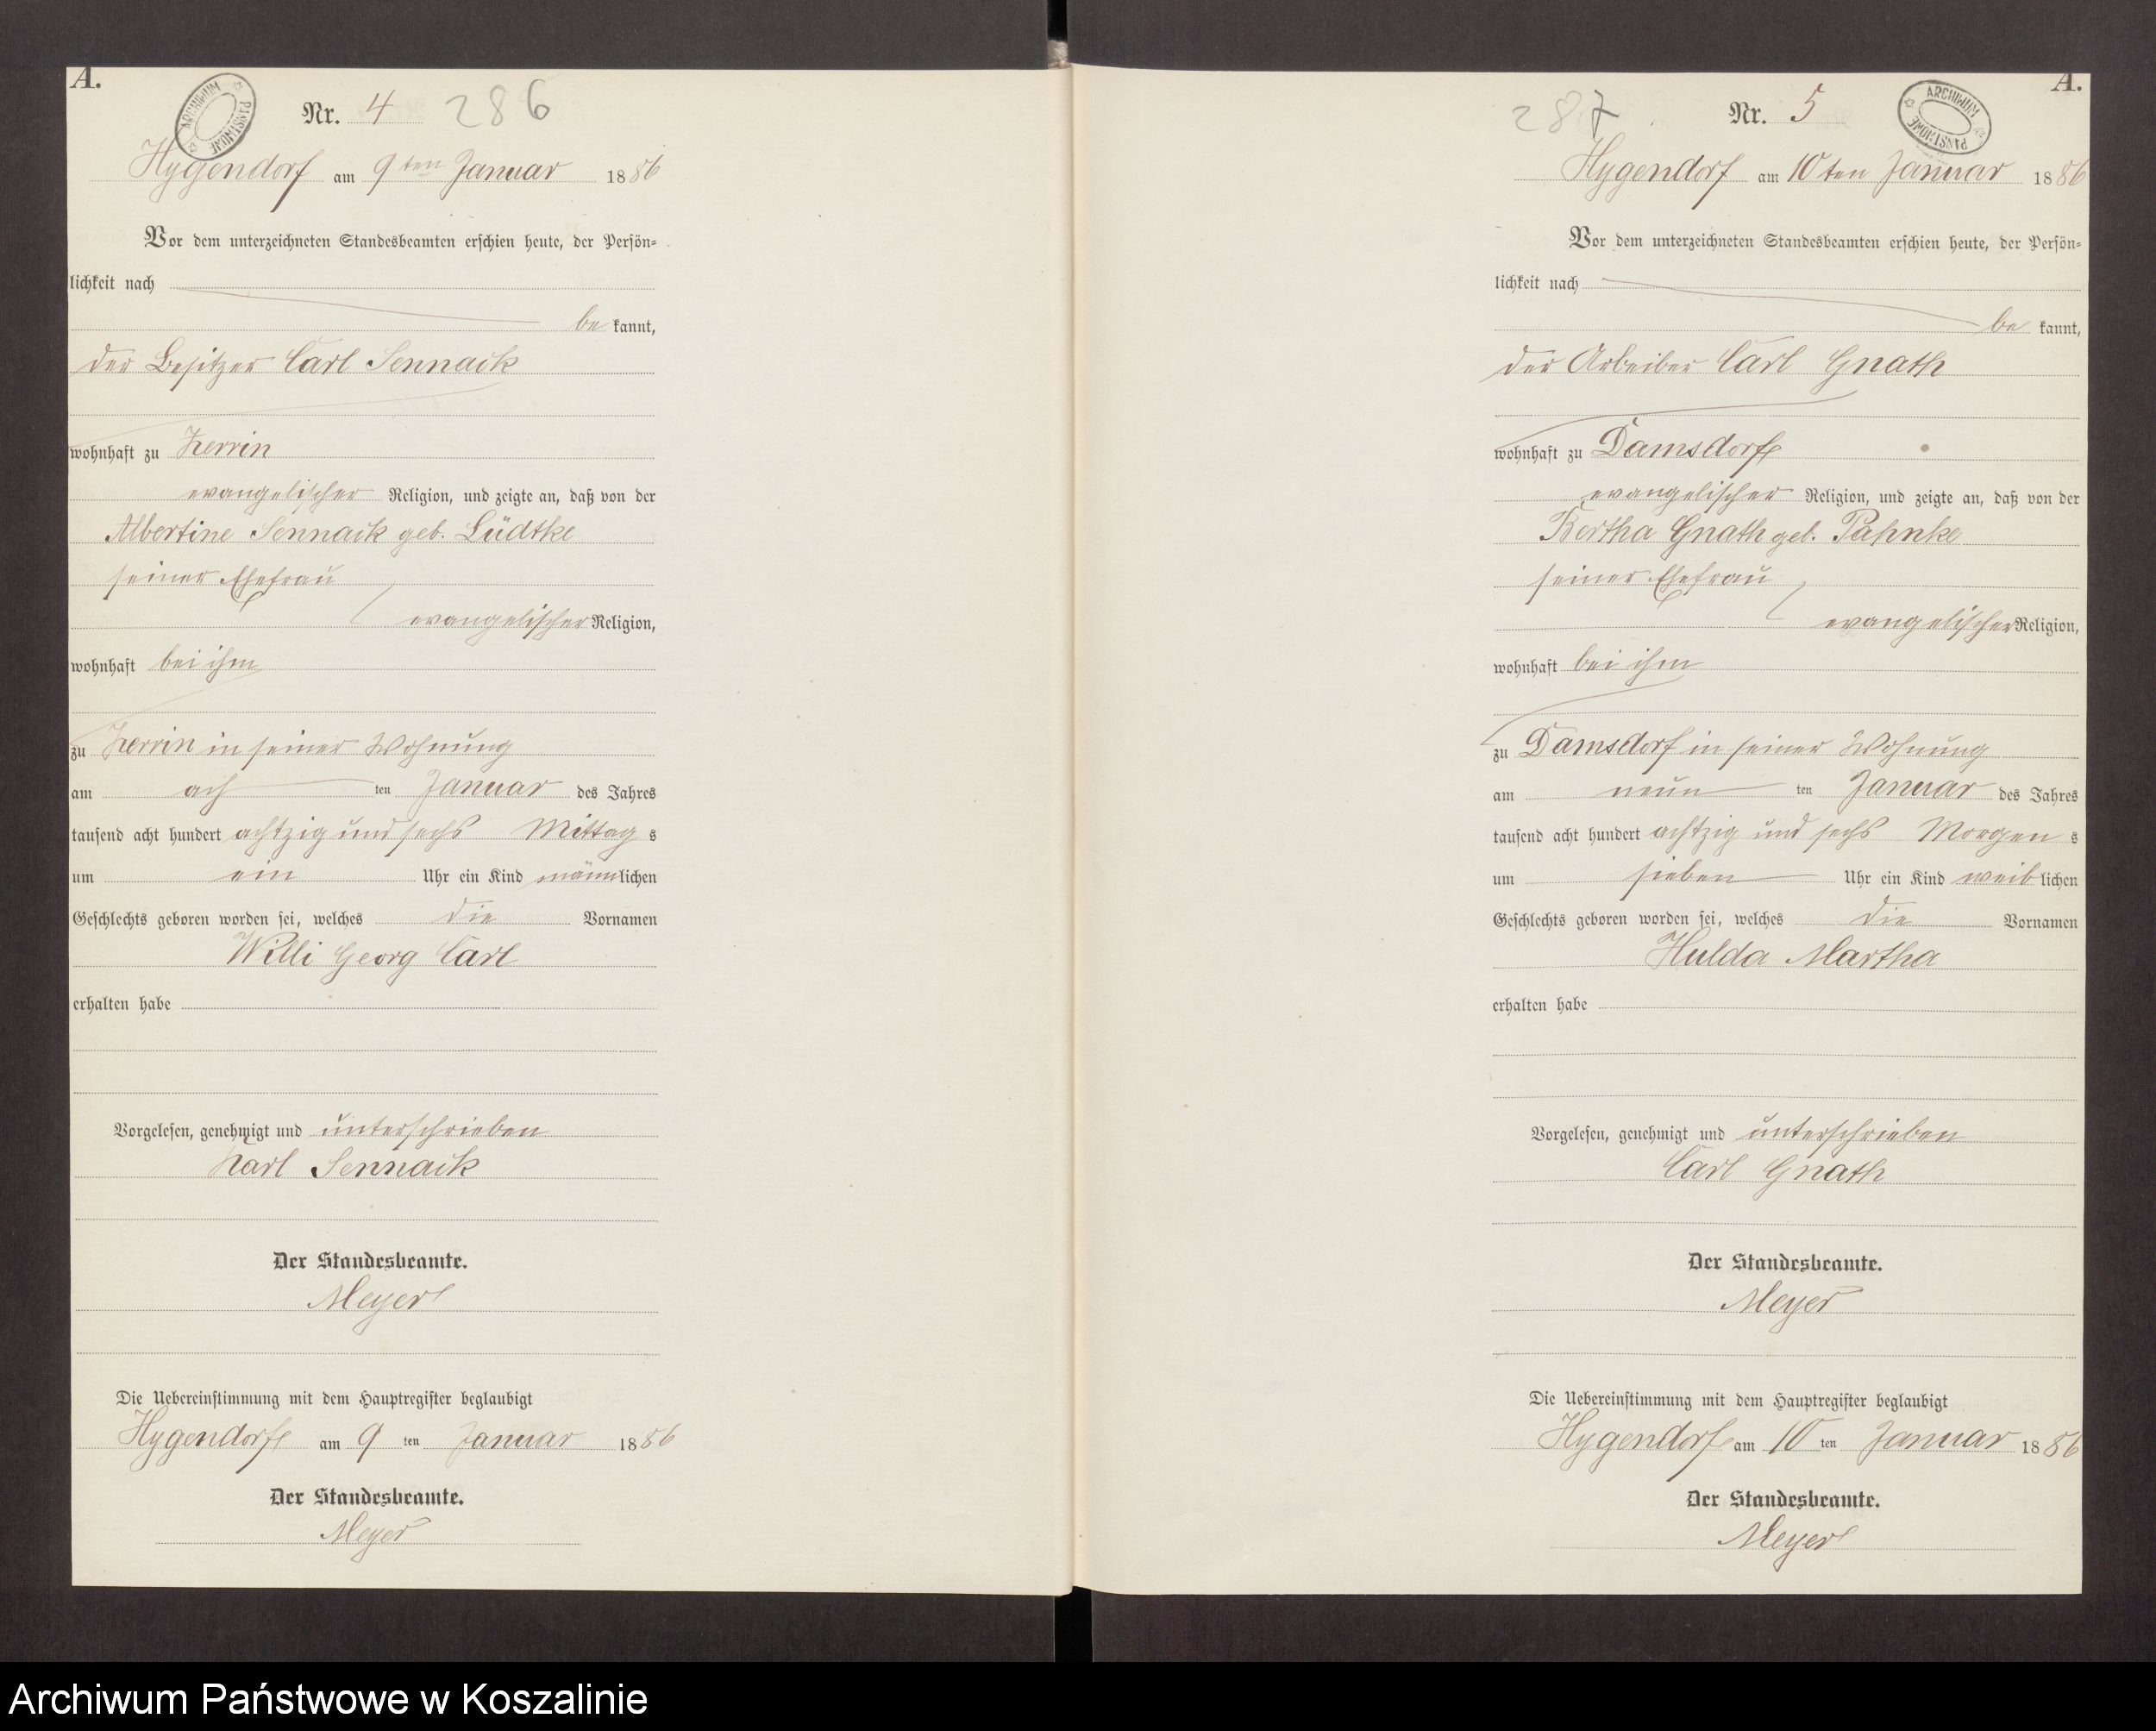 A.
ARCHIWUM PAŃSTWOWE
Nr. 4 286
Hygendorf am 9ten Januar 1886
Vor dem unterzeichneten Standesbeamten erschien heute, der Persön=
lichkeit nach
be kannt,
der Besitzer Carl Sennack
wohnhaft zu Zerrin
evangelischer Religion, und zeigte an, daß von der
Albertine Sennack geb. Lüdtke
seiner Ehefrau
evangelischer Religion,
wohnhaft bei ihm
zu Zerrin in seiner Wohnung
am ach ten Januar des Jahres
tausend acht hundert achtzig und sechs Mittag s
um ein Uhr ein Kind männlichen
Geschlechts geboren worden sei, welches die Vornamen
Willi Georg Carl
erhalten habe
Vorgelesen, genehmigt und unterschrieben
Karl Sennack
Der Standesbeamte.
Meyer
Die Uebereinstimmung mit dem Hauptregister beglaubigt
Hygendorf am 9 ten Januar 1886
Der Standesbeamte.
Meyer
A.
287 Nr. 5
ARCHIWUM PAŃSTWOWE
Hygendorf am 10ten Januar 1886
Vor dem unterzeichneten Standesbeamten erschien heute, der Persön=
lichkeit nach
be kannt,
der Arbeiter Carl Gnath
wohnhaft zu Damsdorf
evangelischer Religion, und zeigte an, daß von der
Bertha Gnath geb. Pahnke
seiner Ehefrau
evangelischer Religion,
wohnhaft bei ihm
zu Damsdorf in seiner Wohnung
am neun ten Januar des Jahres
tausend acht hundert achtzig und sechs Morgen s
um sieben Uhr ein Kind weiblichen
Geschlechts geboren worden sei, welches die Vornamen
Hulda Martha
erhalten habe
Vorgelesen, genehmigt und unterschrieben
Carl Gnath
Der Standesbeamte.
Meyer
Die Uebereinstimmung mit dem Hauptregister beglaubigt
Hygendorf am 10 ten Januar 1886
Der Standesbeamte.
Meyer
Archiwum Państwowe w Koszalinie